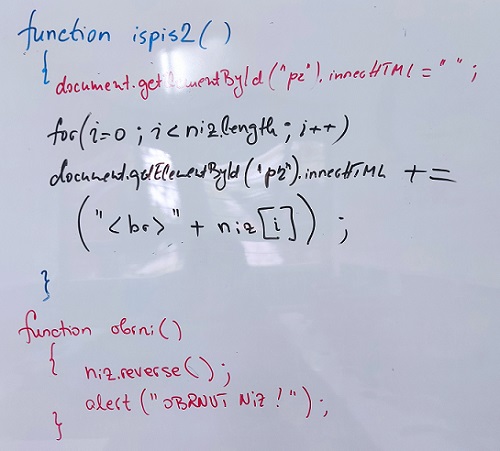 function ispis2()
{
document.getElementById("p2").innerHTML = " ";
for(i=0 ; i<niz.length ; i++)
document.getElementById("p2").innerHTML +=
("<br>" + niz[i]) ;
}
function obrni()
{
niz.reverse();
alert("OBRNUTI NIZ!");
}